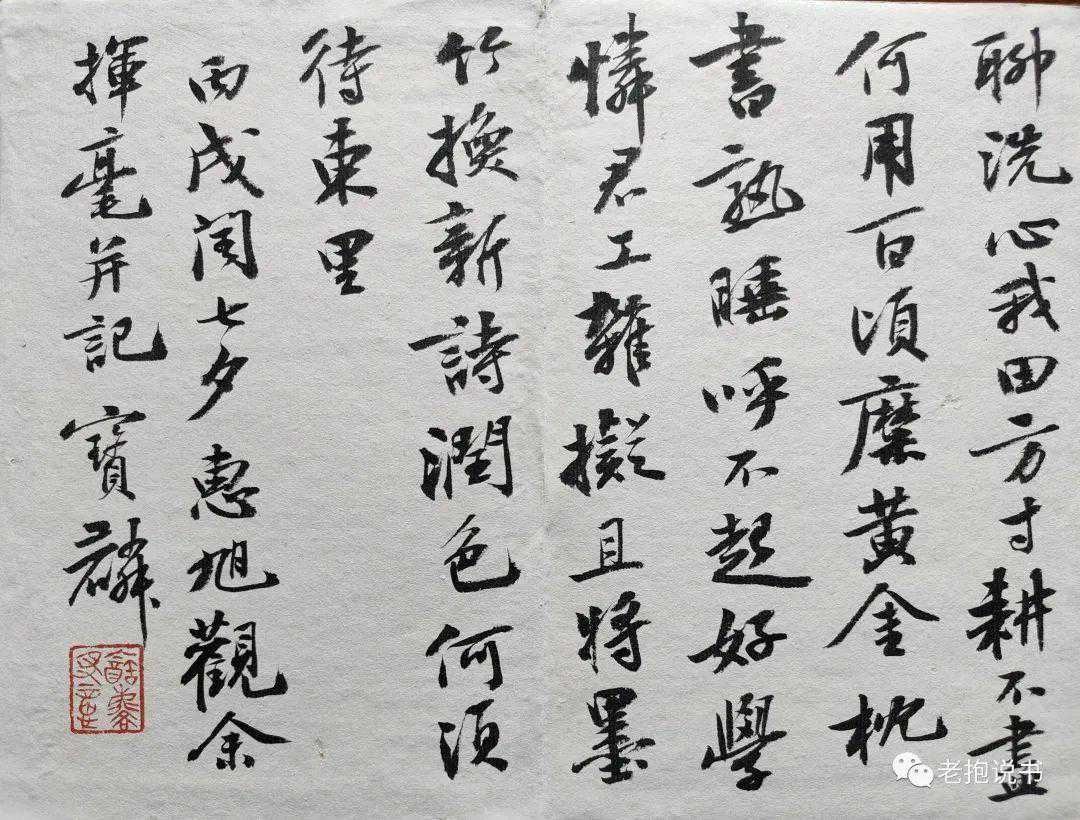 聊洗心我田方寸耕不盡
何用百頃糜黄金枕
書熟睡呼不起好學
憐君工雜擬且將墨
竹換新詩潤色何須
待東里
丙戌閏七夕惠旭觀余
揮毫并記寶麟
老抱说书